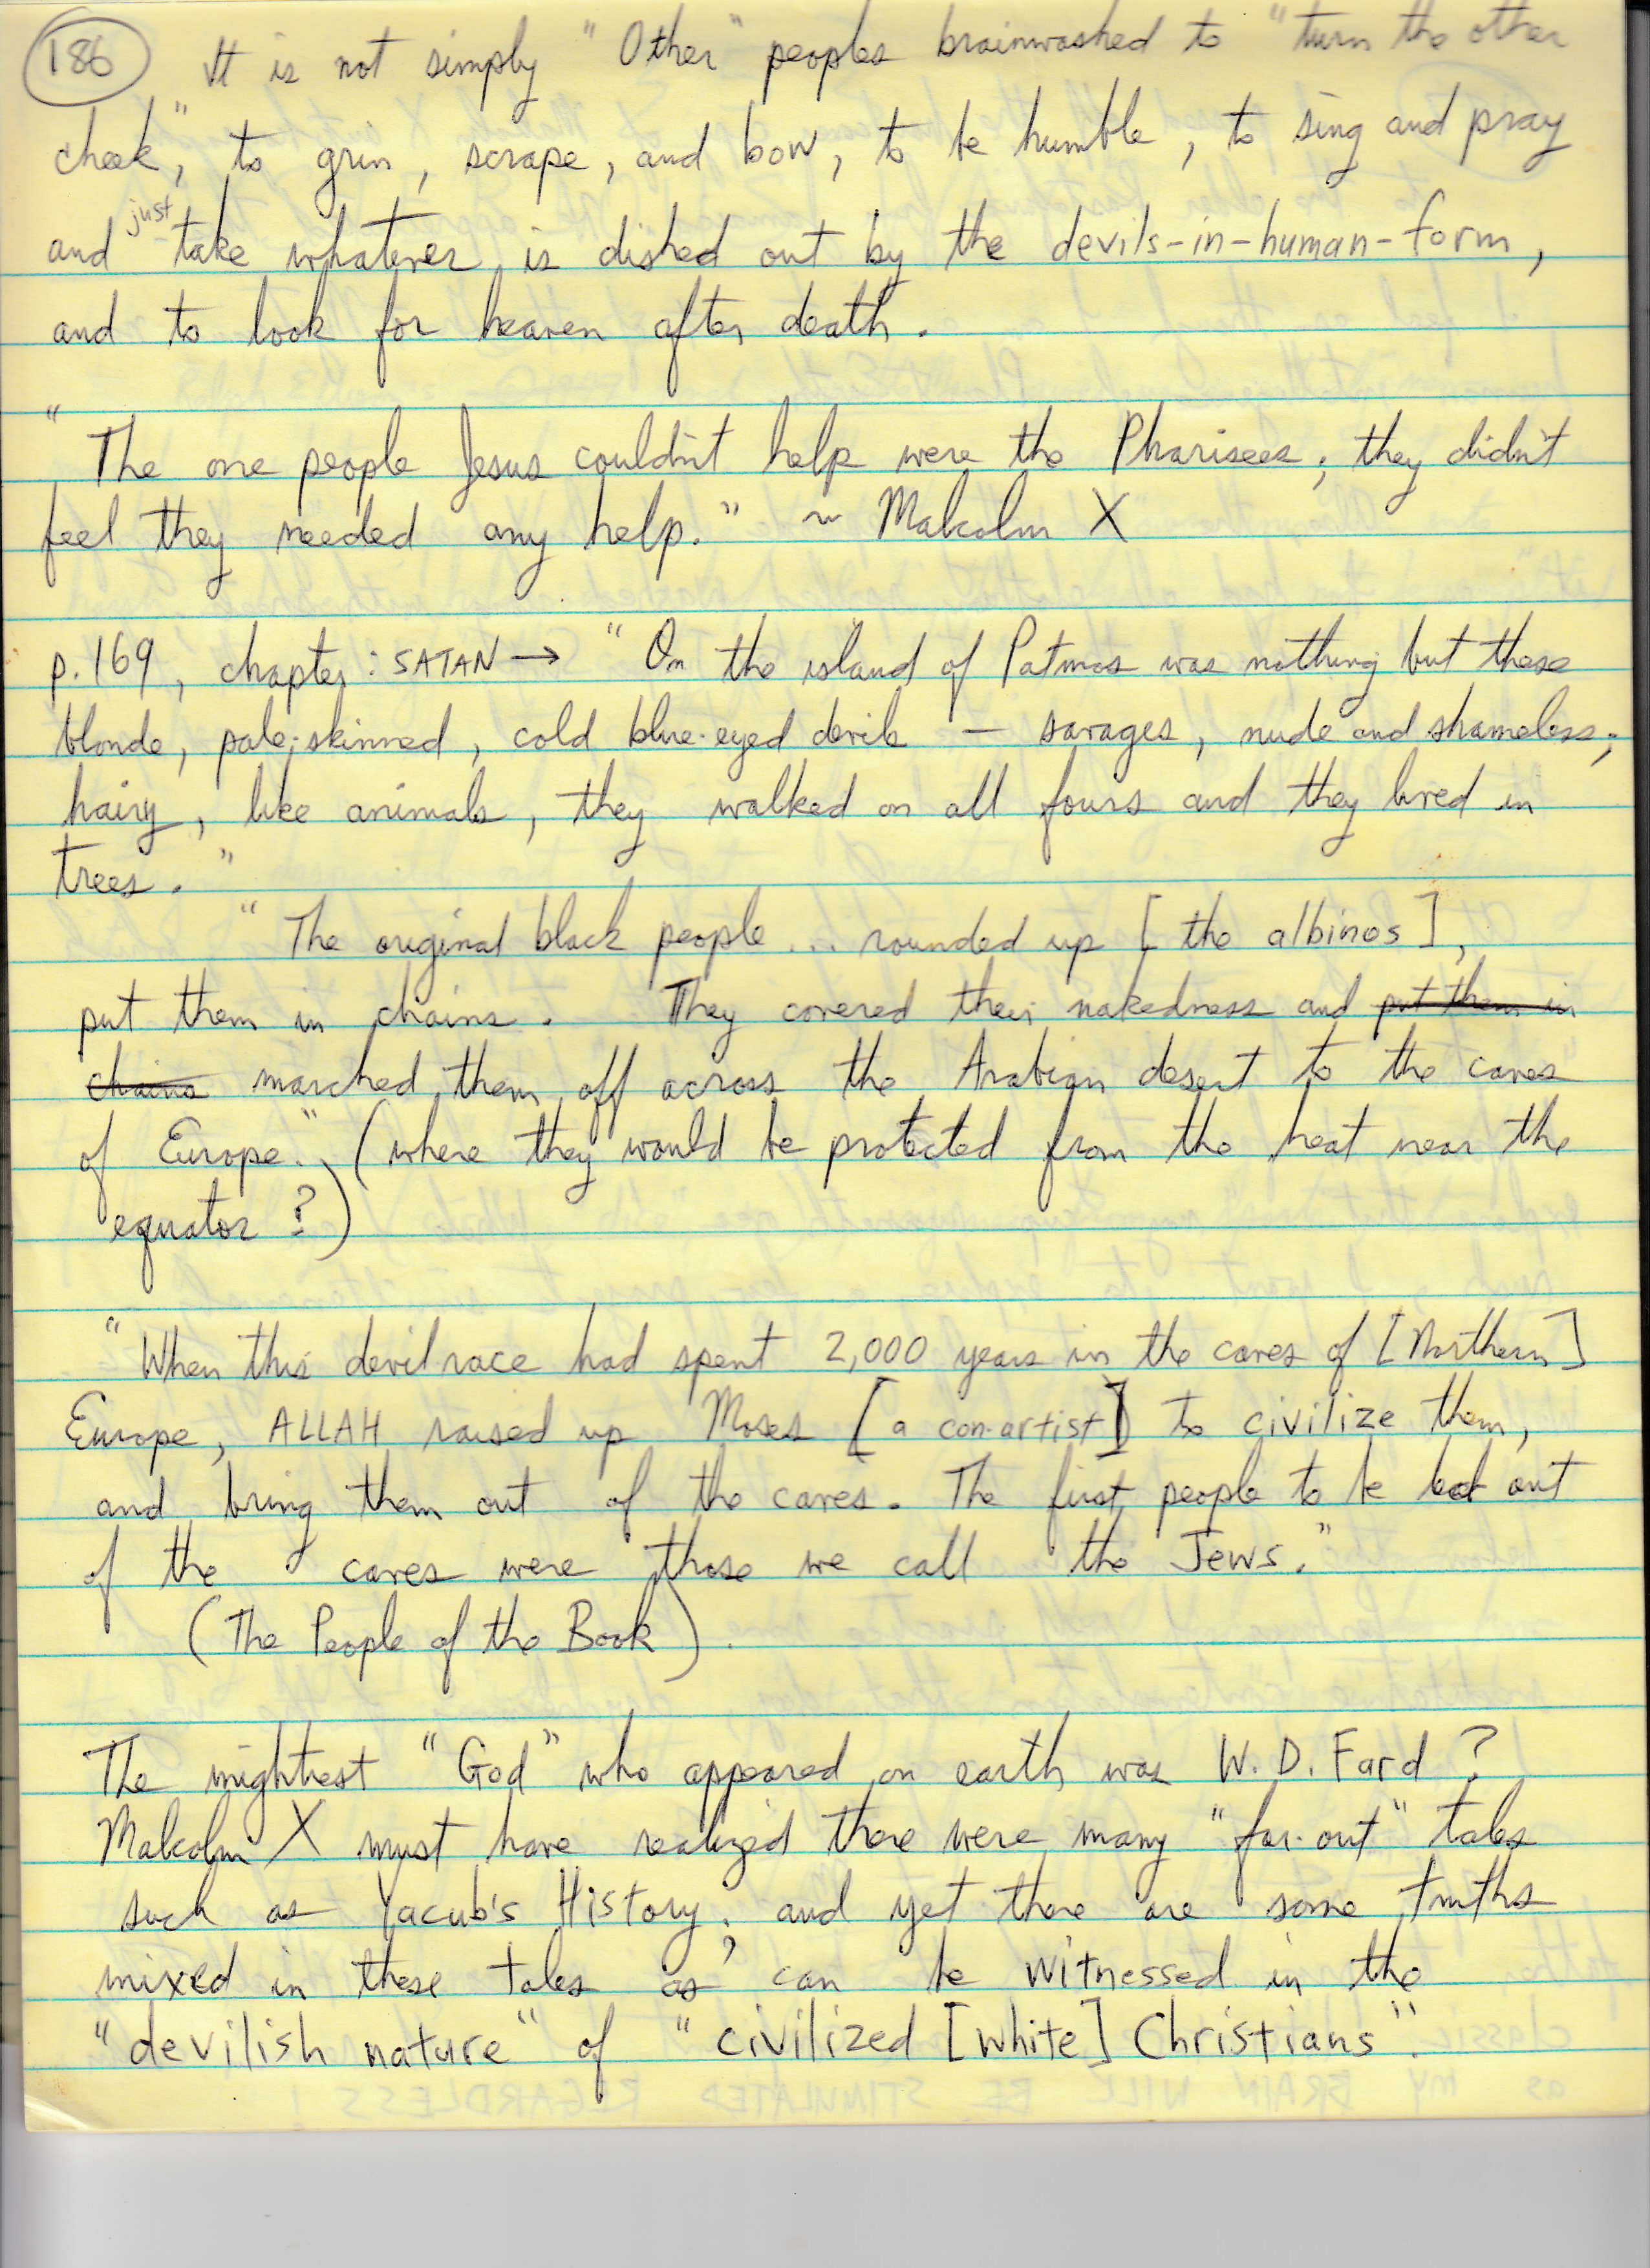 186 It is not simply "Other" peoples brainwashed to "turn the other
cheek," to grin, scrape, and bow, to be humble, to sing and pray
and just take whatever is dished out by the devils-in-human-form,
and to look for heaven after death.
"The one people Jesus couldn't help were the Pharisees; they didn't
feel they needed any help." ~ Malcolm X
p.169, chapter: SATAN → "On the island of Patmos was nothing but these
blonde, pale-skinned, cold blue-eyed devils — savages, nude and shameless;
hairy, like animals, they walked on all fours and they lived in
trees."
"The original black people... rounded up [the albinos],
put them in chains. They covered their nakedness and put them in
chains marched them off across the Arabian desert to the caves
of Europe." (where they would be protected from the heat near the
equator?)
"When this devil race had spent 2,000 years in the caves of [Northern]
Europe, ALLAH raised up Moses [a con-artist] to civilize them,
and bring them out of the caves. The first people to be led out
of the caves were those we call the Jews."
(The People of the Book).
The mightiest "God" who appeared on earth was W. D. Fard?
Malcolm X must have realized there were many "far-out" tales
such as Yacub's History; and yet there are some truths
mixed in these tales as can be witnessed in the
"devilish nature" of "civilized [white] Christians".